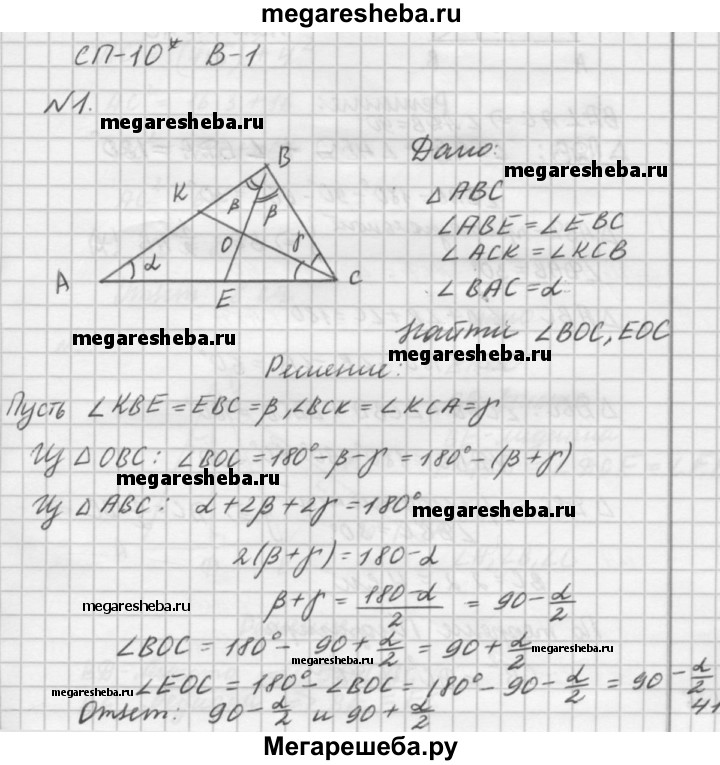 megaresheba.ru
СП-10* В-1
№1.
megaresheba.ru
B
K
β
β
O
γ
A
α
C
E
Дано:
megaresheba.ru
△ABC
∠ABE = ∠EBC
∠ACK = ∠KCB
∠BAC = α
megaresheba.ru
Найти ∠BOC, EOC
megaresheba.ru
Решение:
Пусть ∠KBE = EBC = β, ∠BCK = ∠KCA = γ
Из △OBC: ∠BOC = 180° - β - γ = 180° - (β + γ)
megaresheba.ru
Из △ABC: α + 2β + 2γ = 180°
megaresheba.ru
2(β + γ) = 180 - α
megaresheba.ru
β + γ = (180 - α)/2 = 90 - α/2
∠BOC = 180° - 90 + α/2 = 90 + α/2
megaresheba.ru
megaresheba.ru
megaresheba.ru
∠EOC = 180° - ∠BOC = 180° - 90 - α/2 = 90 - α/2
megaresheba.ru
Ответ: 90 - α/2 и 90 + α/2
41
Мегарешеба.ру